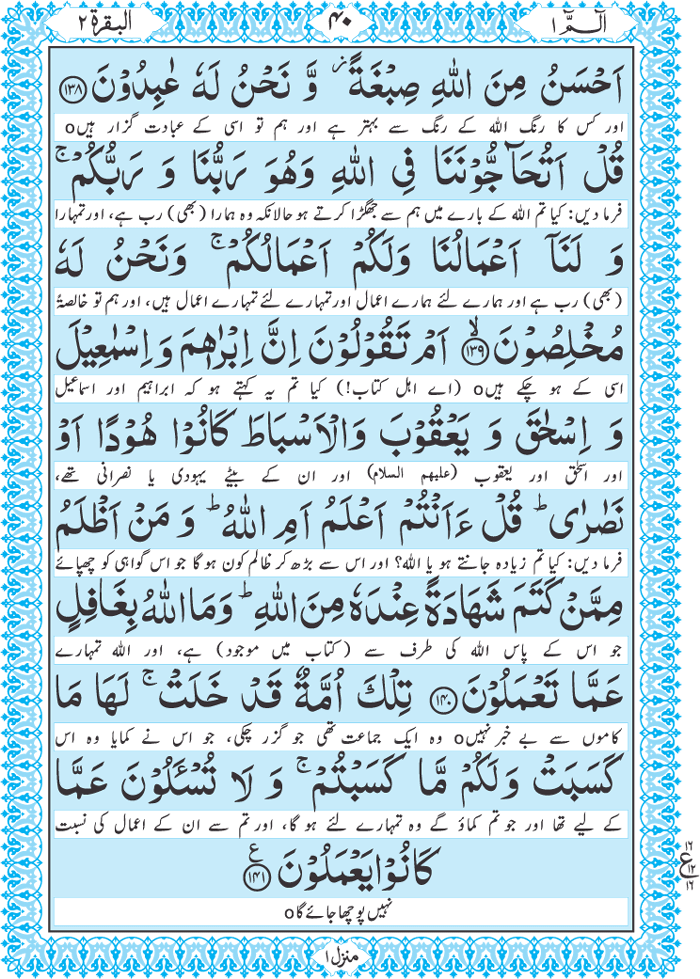 الٓمّٓ ١
۴۰
البقرة ٢
اَحْسَنُ مِنَ اللهِ صِبْغَةً ؗ وَّ نَحْنُ لَهٗ عٰبِدُوْنَ ﴿۱۳۸﴾
اور کس کا رنگ اللہ کے رنگ سے بہتر ہے اور ہم تو اسی کے عبادت گزار ہیںo
قُلْ اَتُحَآجُّوْنَنَا فِي اللهِ وَهُوَ رَبُّنَا وَ رَبُّكُمْ ۚ
فرما دیں: کیا تم اللہ کے بارے میں ہم سے جھگڑا کرتے ہو حالانکہ وہ ہمارا (بھی) رب ہے، اور تمہارا
وَ لَنَآ اَعْمَالُنَا وَلَكُمْ اَعْمَالُكُمْ ۚ وَنَحْنُ لَهٗ
(بھی) رب ہے اور ہمارے لئے ہمارے اعمال اور تمہارے لئے تمہارے اعمال ہیں، اور ہم تو خالصۃً
مُخْلِصُوْنَ ﴿۱۳۹﴾ ۙ اَمْ تَقُوْلُوْنَ اِنَّ اِبْرٰهٖمَ وَ اِسْمٰعِيْلَ
اسی کے ہو چکے ہیںo (اے اہلِ کتاب!) کیا تم یہ کہتے ہو کہ ابراہیم اور اسماعیل
وَ اِسْحٰقَ وَ يَعْقُوْبَ وَالْاَسْبَاطَ كَانُوْا هُوْدًا اَوْ
اور اسحٰق اور یعقوب (علیھم السلام) اور ان کے بیٹے یہودی یا نصرانی تھے،
نَصٰرٰى ؕ قُلْ ءَاَنْتُمْ اَعْلَمُ اَمِ اللهُ ؕ وَ مَنْ اَظْلَمُ
فرما دیں: کیا تم زیادہ جانتے ہو یا اللہ؟ اور اس سے بڑھ کر ظالم کون ہو گا جو اس گواہی کو چھپائے
مِمَّنْ كَتَمَ شَهَادَةً عِنْدَهٗ مِنَ اللهِ ؕ وَمَا اللهُ بِغَافِلٍ
جو اس کے پاس اللہ کی طرف سے (کتاب میں موجود) ہے، اور اللہ تمہارے
عَمَّا تَعْمَلُوْنَ ﴿۱۴۰﴾ تِلْكَ اُمَّةٌ قَدْ خَلَتْ ۚ لَهَا مَا
کاموں سے بے خبر نہیںo وہ ایک جماعت تھی جو گزر چکی، جو اس نے کمایا وہ اس
كَسَبَتْ وَلَكُمْ مَّا كَسَبْتُمْ ۚ وَ لَا تُسْـَٔلُوْنَ عَمَّا
کے لیے تھا اور جو تم کماؤ گے وہ تمہارے لئے ہو گا، اور تم سے ان کے اعمال کی نسبت
كَانُوْا يَعْمَلُوْنَ ﴿۱۴۱﴾ ع
نہیں پوچھا جائے گاo
۱۶
ع ۱۲
۱۶
منزل ١